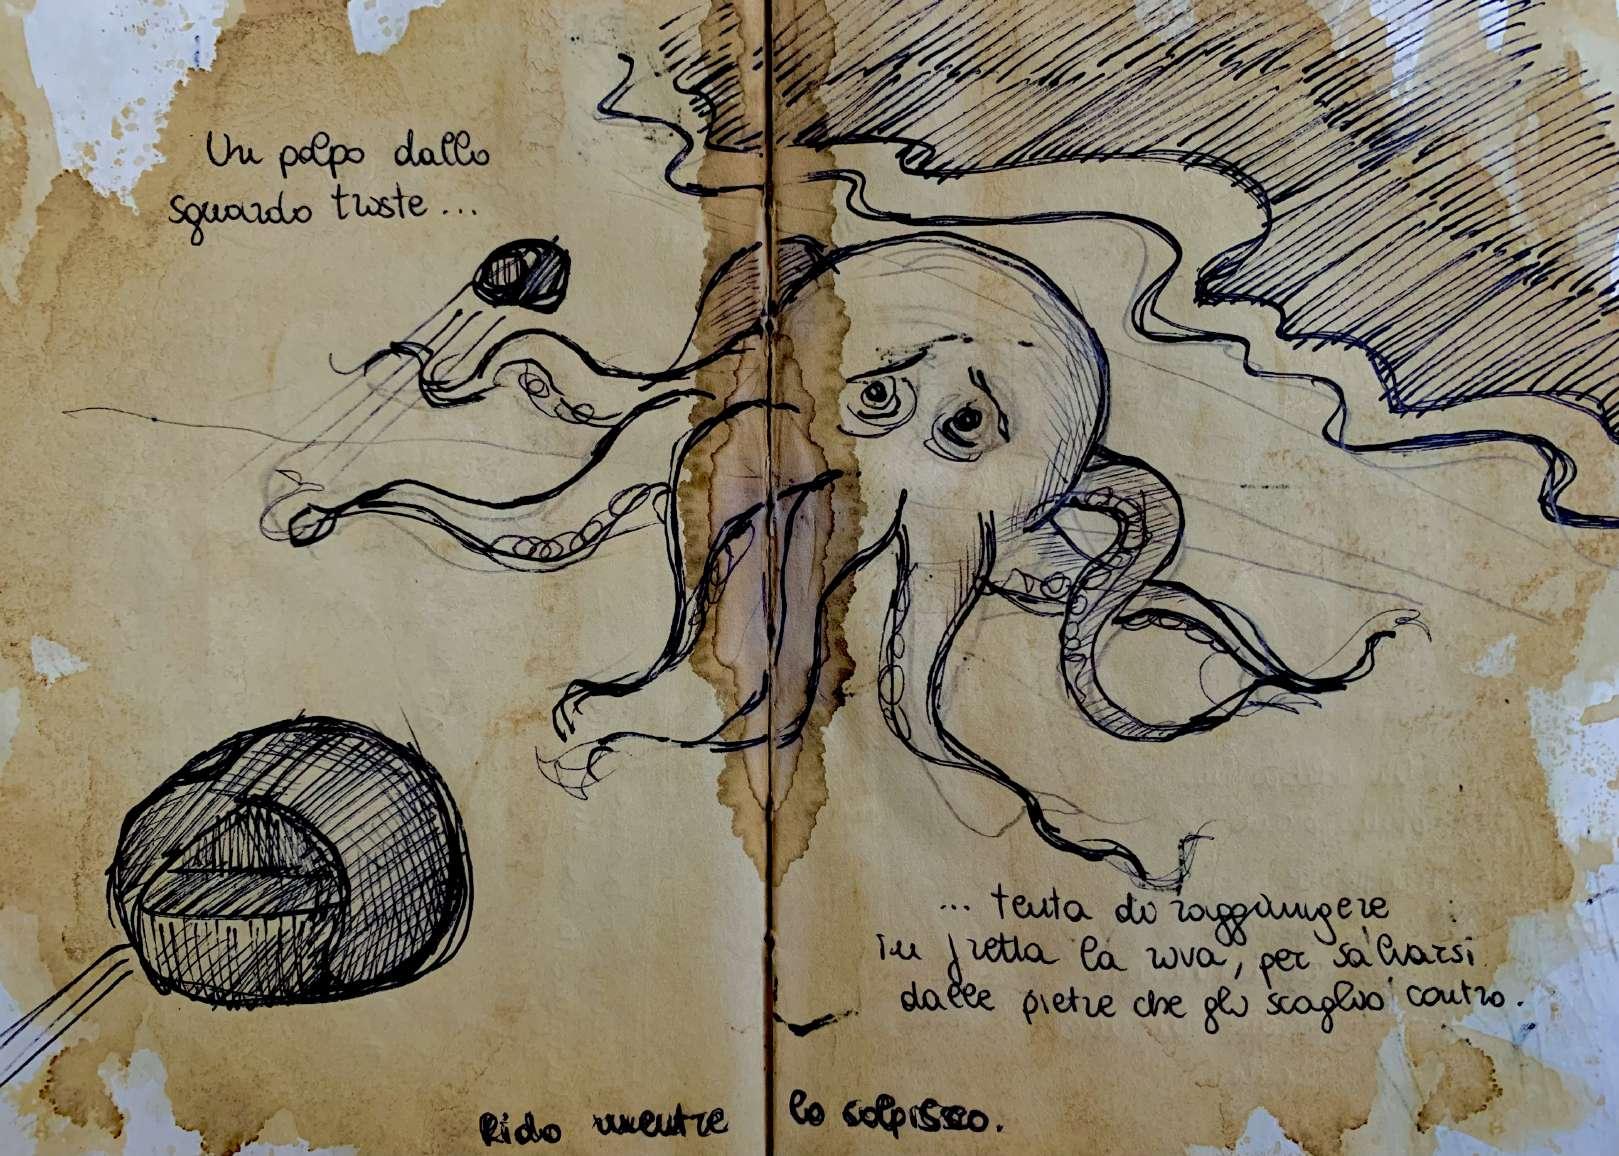 Un polpo dallo
sguardo triste...
... tenta di raggiungere
in fretta la riva, per salvarsi
dalle pietre che gli scaglio contro.
Rido mentre lo colpisco.